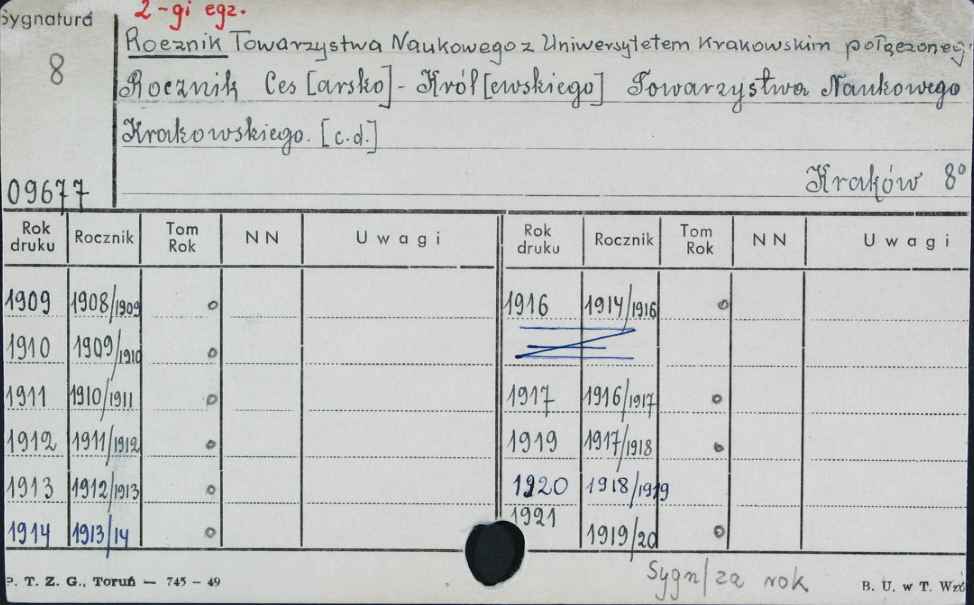 Sygnatura
2-gi egz.
8
Rocznik Towarzystwa Naukowego z Uniwersytetem Krakowskim połączonego
Rocznik Ces[arsko]-Król[ewskiego] Towarzystwa Naukowego
Krakowskiego. [c.d.]
Kraków 8°
09677
Rok druku Rocznik Tom Rok NN Uwagi Rok druku Rocznik Tom Rok NN Uwagi
1909 1908/1909 o 1916 1914/1916 o
1910 1909/1910 o
1911 1910/1911 o 1917 1916/1917 o
1912 1911/1912 o 1919 1917/1918 o
1913 1912/1913 o 1920 1918/1919
1914 1913/14 o 1921 1919/20 o
Sygn/za rok
P. T. Z. G., Toruń — 745 - 49
B. U. w T. Wzó